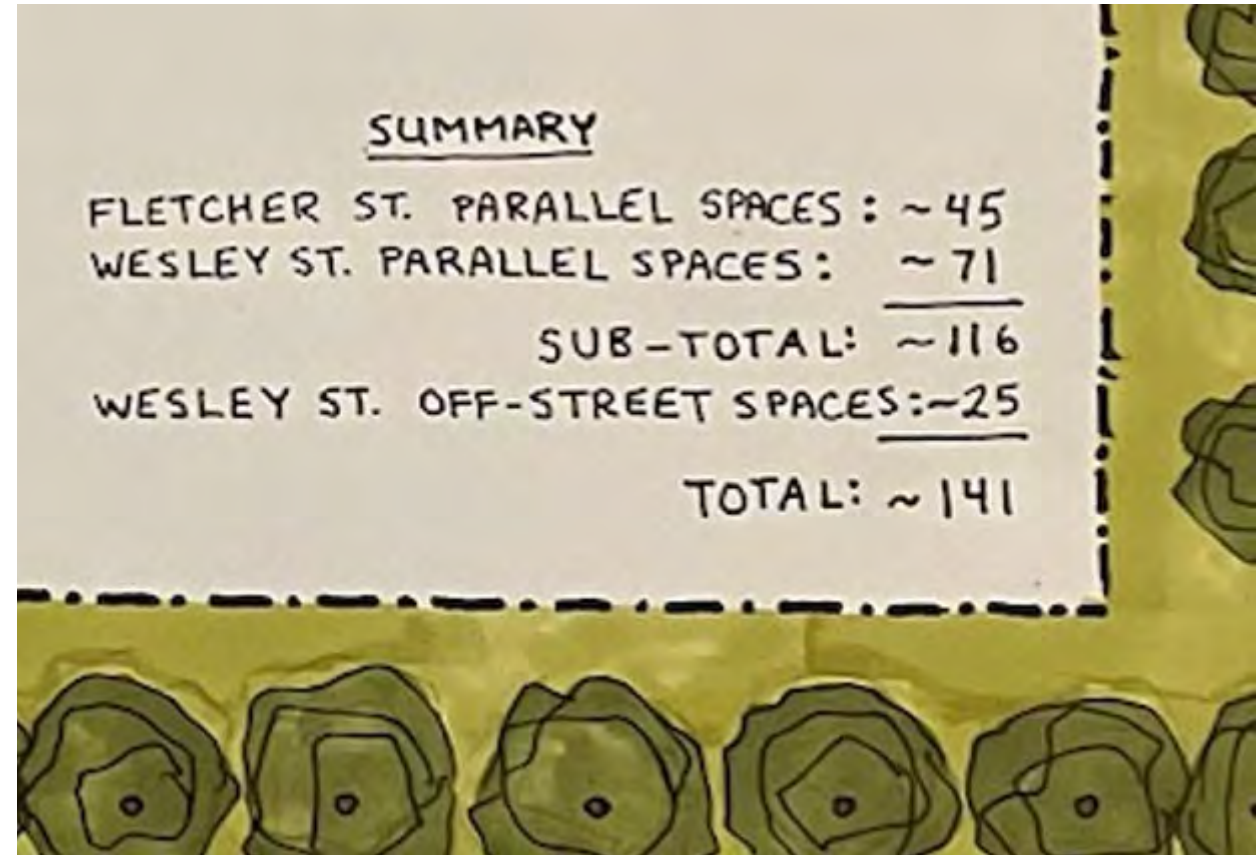 SUMMARY
FLETCHER ST. PARALLEL SPACES: ~45
WESLEY ST. PARALLEL SPACES: ~71
SUB-TOTAL: ~116
WESLEY ST. OFF-STREET SPACES: ~25
TOTAL: ~141